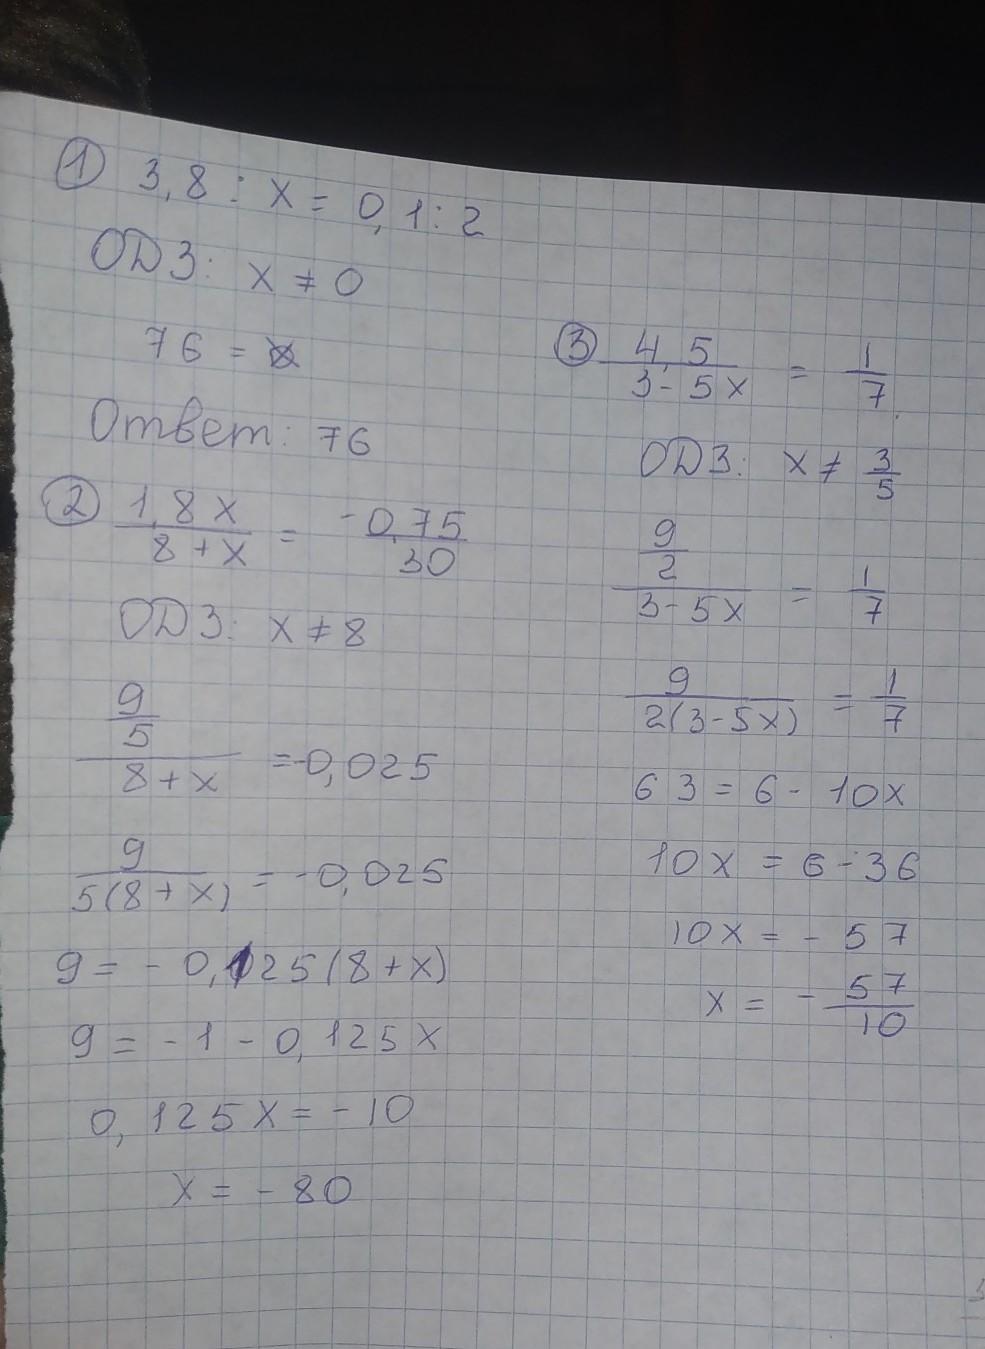 ① 3,8 : x = 0,1 : 2
ОДЗ: x ≠ 0
76 = x
Ответ: 76
② 1,8x / 8 + x = -0,75 / 30
ОДЗ: x ≠ 8
9/5 / 8 + x = -0,025
9 / 5(8 + x) = -0,025
9 = - 0,125(8 + x)
9 = - 1 - 0,125x
0,125x = - 10
x = - 80
③ 4,5 / 3 - 5x = 1/7
ОДЗ: x ≠ 3/5
9/2 / 3 - 5x = 1/7
9 / 2(3 - 5x) = 1/7
63 = 6 - 10x
10x = 6 - 36
10x = - 57
x = - 57/10